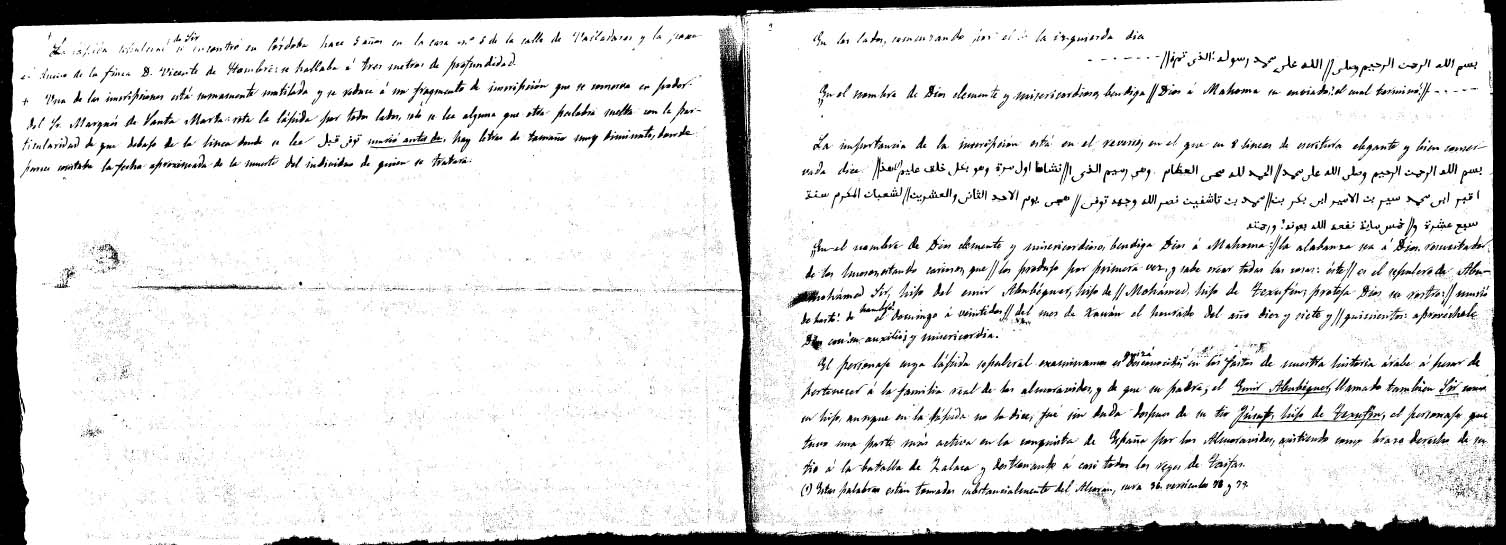 La lápida sepulcral de Sir se encontró en Córdoba hace 5 años en la casa nº 5 de la calle de Valladares y la posee
el dueño de la finca D. Vicente de Hombre: se hallaba á tres metros de profundidad.
+ Una de las inscripciones está sumamente mutilada y se reduce á un fragmento de inscripción que se conserva en poder
del Sr. Marqués de Santa Marta: rota la lápida por todos lados, solo se lee alguna que otra palabra suelta con la par-
ticularidad de que debajo de la línea donde se lee توفى قبل murió antes de, hay letras de tamaño muy diminuto, donde
parece constaba la fecha aproximada de la muerte del individuo de quien se trataba.
2
En los lados, comenzando por el de la izquierda dice
بسم الله الرحمن الرحيم وصلى // الله على محمد رسوله: الذى توفى // - - - - - - -
"En el nombre de Dios clemente y misericordioso, bendiga // Dios á Mahoma su enviado: el cual terminó: // - - - - -
La importancia de la inscripcion está en el reverso, en el que en 8 líneas de escritura elegante y bien conser-
vada dice: بسم الله الرحمن الرحيم وصلى الله على محمد // الحمد لله محى العظام وهى رميم الذى // انشاها اول مرة وهو بكل خلق عليم // هذا
اقبر ابى محمد سير بن الامير ابى بكر بن // محمد بن تاشفين نصر الله وجهه توفى // ضحى يوم الاحد الثانى والعشرين // لشعبان المكرم سنة
سبع عشرة و // خمس ماية نفعه الله بعونه ورحمته
"En el nombre de Dios clemente y misericordioso, bendiga Dios á Mahoma: // la alabanza sea á Dios, resucitador
de los huesos, estando cariosos, que // los produjo por primera vez, y sabe crear todas las cosas: este // es el sepulcro de Abu-
mohámed Sir, hijo del emir Abubéquer, hijo de // Mohámed, hijo de Texufín; proteja Dios su rostro: // murió
de mañana el domingo á veintidos // del mes de Xaaban el honrado del año diez y siete y // quinientos: aprovéchele
Dios con su auxilio, y misericordia.
El personaje cuya lápida sepulcral examinamos es quizá desconocido, en los fastos de nuestra historia árabe á pesar de
pertenecer á la familia real de los almoravides, y de que su padre, el Emir Abubéquer, llamado tambien Sir como
su hijo, aunque en la lápida no lo dice, fué sin duda despues de su tio Júsuf, hijo de Texufín, el personaje que
tuvo una parte más activa en la conquista de España por los Almoravides, asistiendo como brazo derecho de su
tio á la batalla de Zalaca y destronando á casi todos los reyes de Taifas.
(1) Estas palabras están tomadas substancialmente del Alcorán, sura 36 versículos 78 y 79.